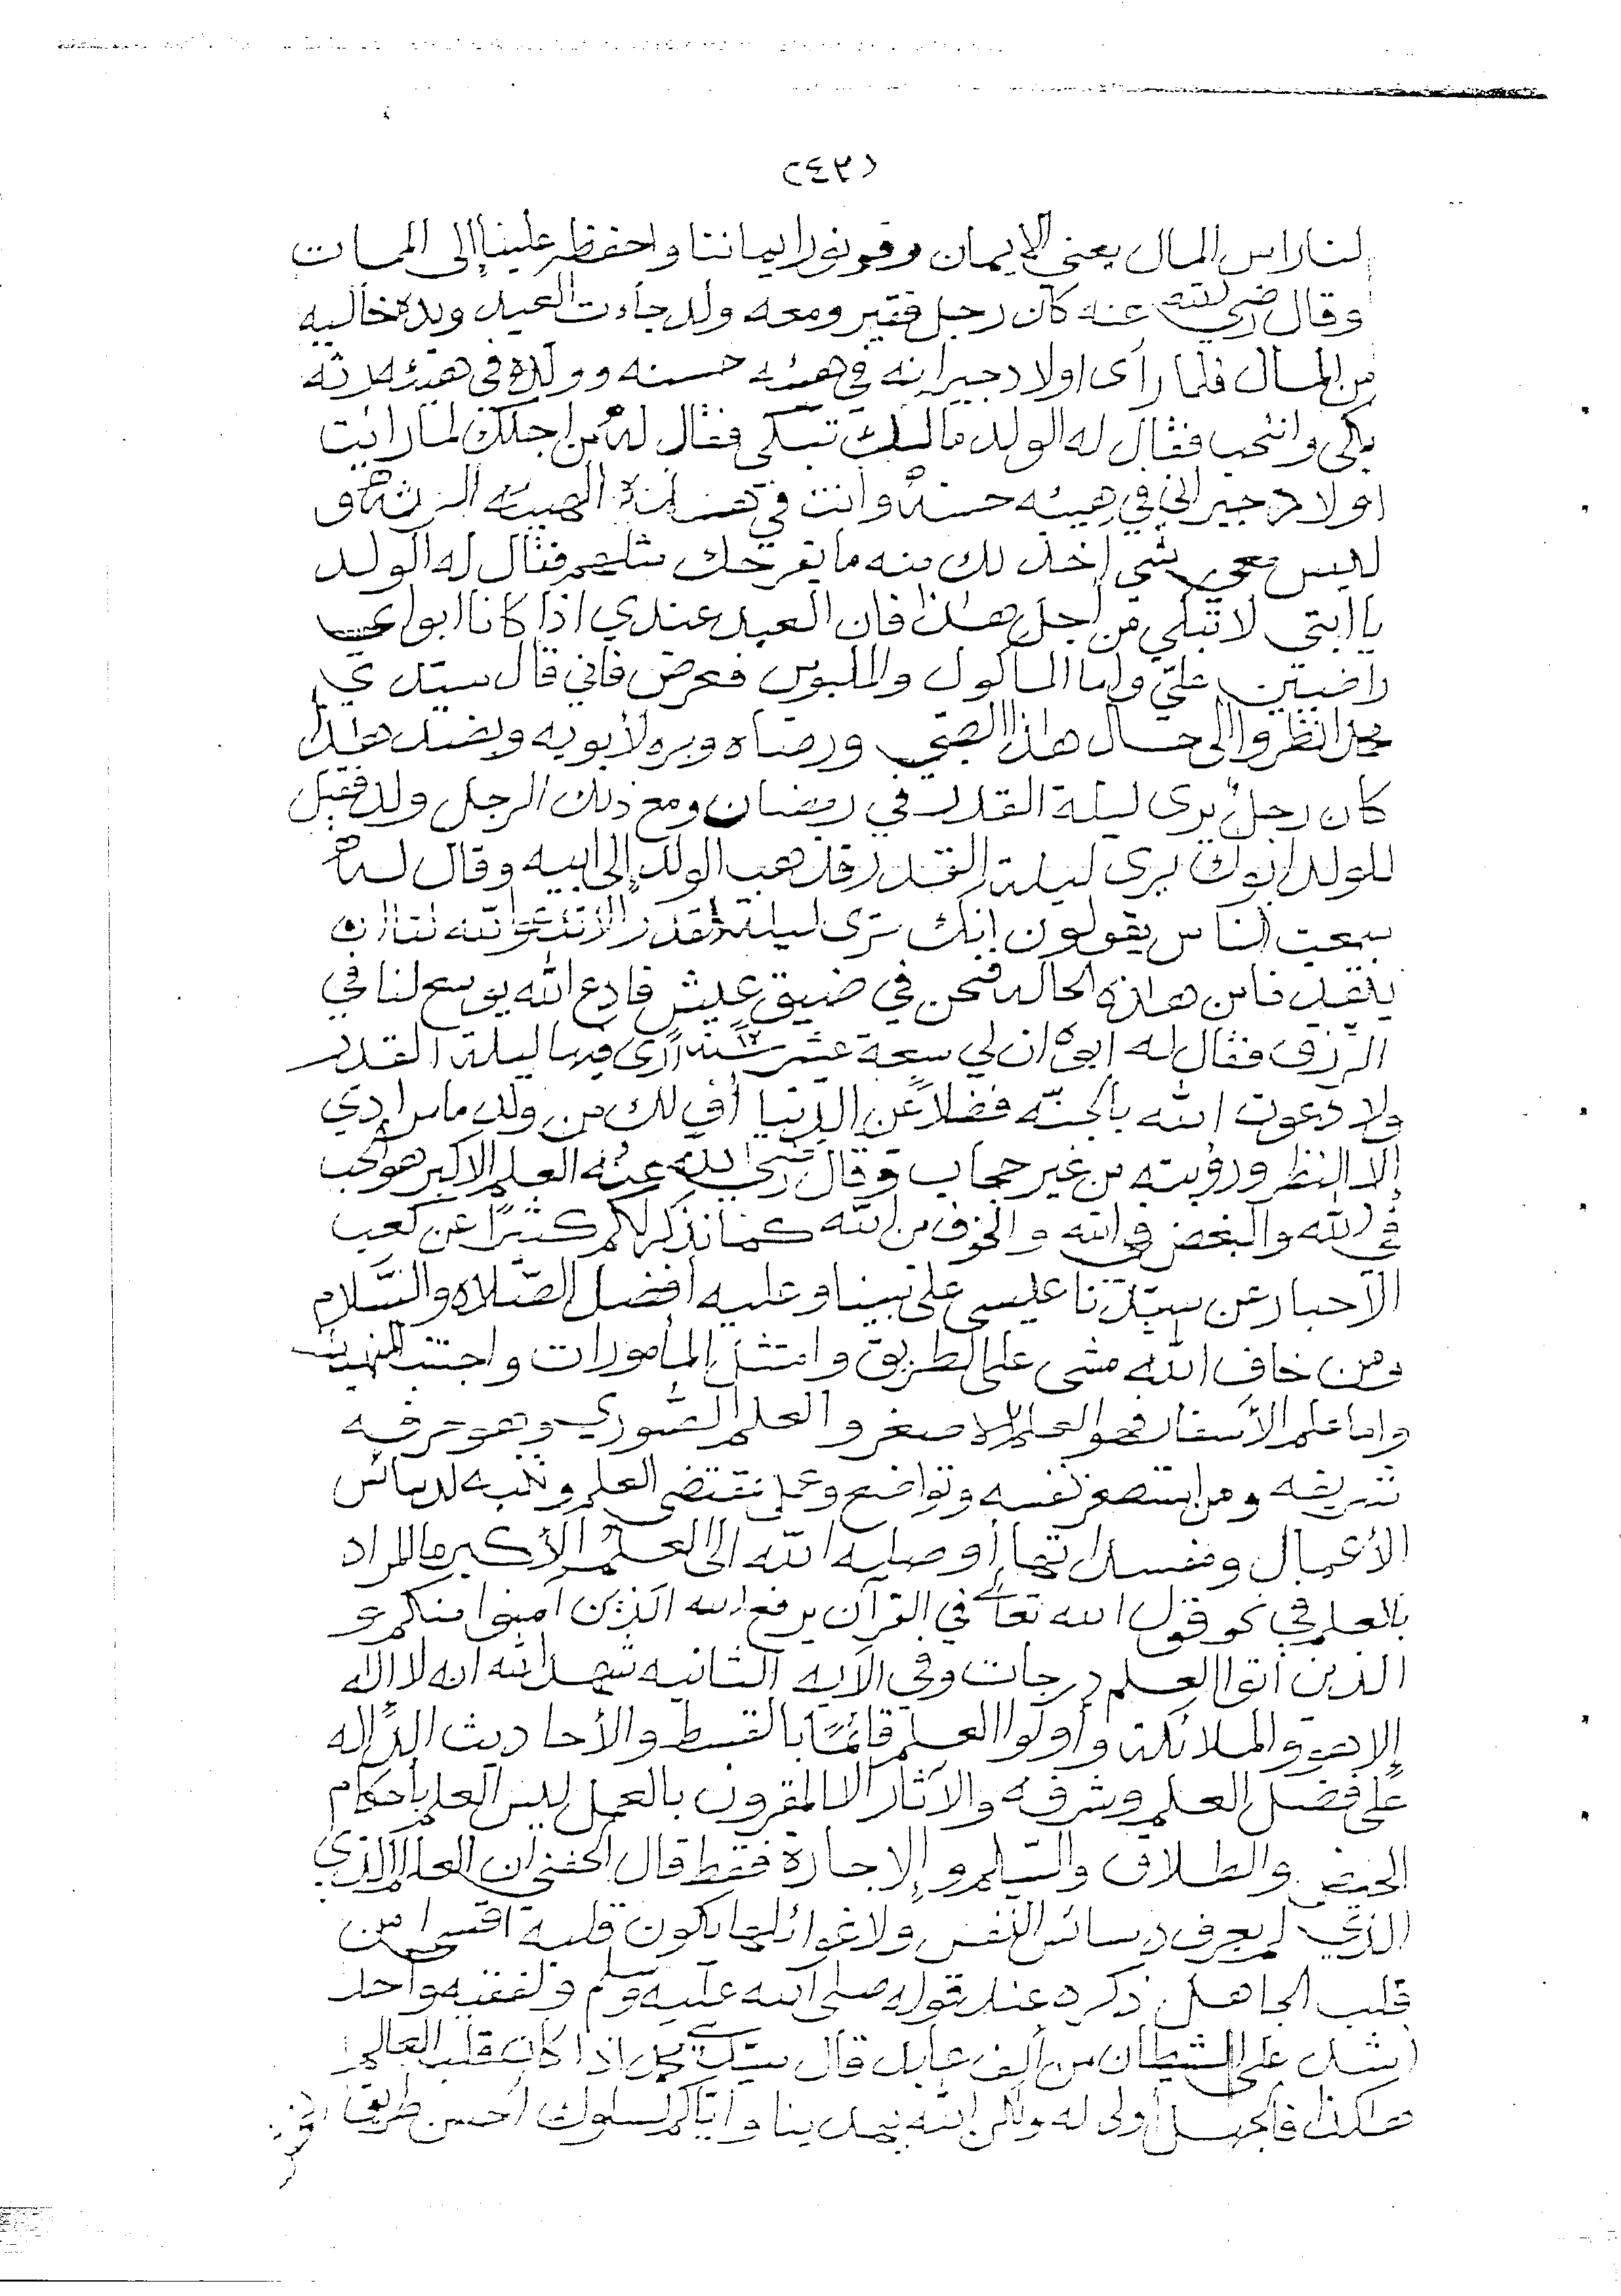 (٤٣)
لنا راس المال يعني الإيمان وقو نور ايماننا واحفظه علينا إلى الممات
وقال رضي الله عنه كان رجل فقير ومعه ولد جاءت العيد ويده خاليه
من المال فلما رأى اولاد جيرانه في هيئه حسنه وولده في هيئه رثه
بكى وانتحب فقال له الولد مالك تبكي فقال له من اجلك لما رايت
اولاد جيراني في هيئه حسنة وانت في هذه الهيئه الرثة و
ليس معي شي اخذ لك منه ما يفرحك مثلهم فقال له الولد
يا ابتي لا تبكي من أجل هذا فان العيد عندي اذا كانا ابواي
راضيين عليّ واما المأكول والملبوس فعرض فاني قال سيدي
محمد انظروا الى حال هذا الصبي ورضاه وبره لأبويه وبضد هذا
كان رجلٌ يرى ليلة القدر في رمضان ومع ذلك الرجل ولد فقيل
للولد ابوك يرى ليلة القدر فذهب الولد إلى ابيه وقال له
سمعت الناس يقولون إنك ترى ليلة القدر ألا تدعو الله لنا ان
ينقذنا من هذه الحاله فنحن في ضيق عيش فادع الله يوسع لنا في
الرزق فقال له ابوه ان لي سبعة عشر ١٧ سنة أرى فيها ليلة القدر
ولا دعوت الله بالجنّه فضلاً عن الدنيا أف لك من ولد ما مرادي
إلا النظر ورؤيته من غير حجاب وقال رضي الله عنه العلم الاكبر هو الحب
في الله والبغض في الله والخوف من الله كما نذكر لكم كثيرًا عن كعب
الأحبار عن سيّدنا عيسى على نبينا وعليه أفضل الصّلاه والسّلام
ومن خاف الله مشى على الطريق وامتثل المأمورات واجتنب المنهيات
واما علم الأسفار فهو العلم الاصغر والعلم الصّوري وهو حرفه
شريفه ومن استصغر نفسه وتواضع وعمل بمقتضى العلم ونبه لدسائس
الأعمال ومفسداتها أوصله الله الى العلم الأكبر ما المراد
بالعلم في نحو قول الله تعالى في القرآن يرفع الله الذين آمنوا منكم و
الذين أتوا العلم درجات وفي الآيه الثانيه شهد الله انه لا إله
إلا هو والملائكة وأولوا العلم قائمًا بالقسط والأحاديث الدّاله
على فضل العلم وشرفه والآثار الا المقرون بالعمل ليس العلم بأحكام
الحيض والطلاق والسّلم والإجارة فقط قال الحفني ان العالم الذي
الذي لم يعرف دسائس النفس ولا غوائلها يكون قلبه أقسى من
قلب الجاهل ذكره عند قوله صلى الله عليه وسلم ولفقيه واحد
اشد على الشيطان من ألف عابد قال سيدي محمد اذا كان قلب العالم
هكذا فالجهل أولى له ولكن الله يهدينا واياكم لسلوك أحسن طريق